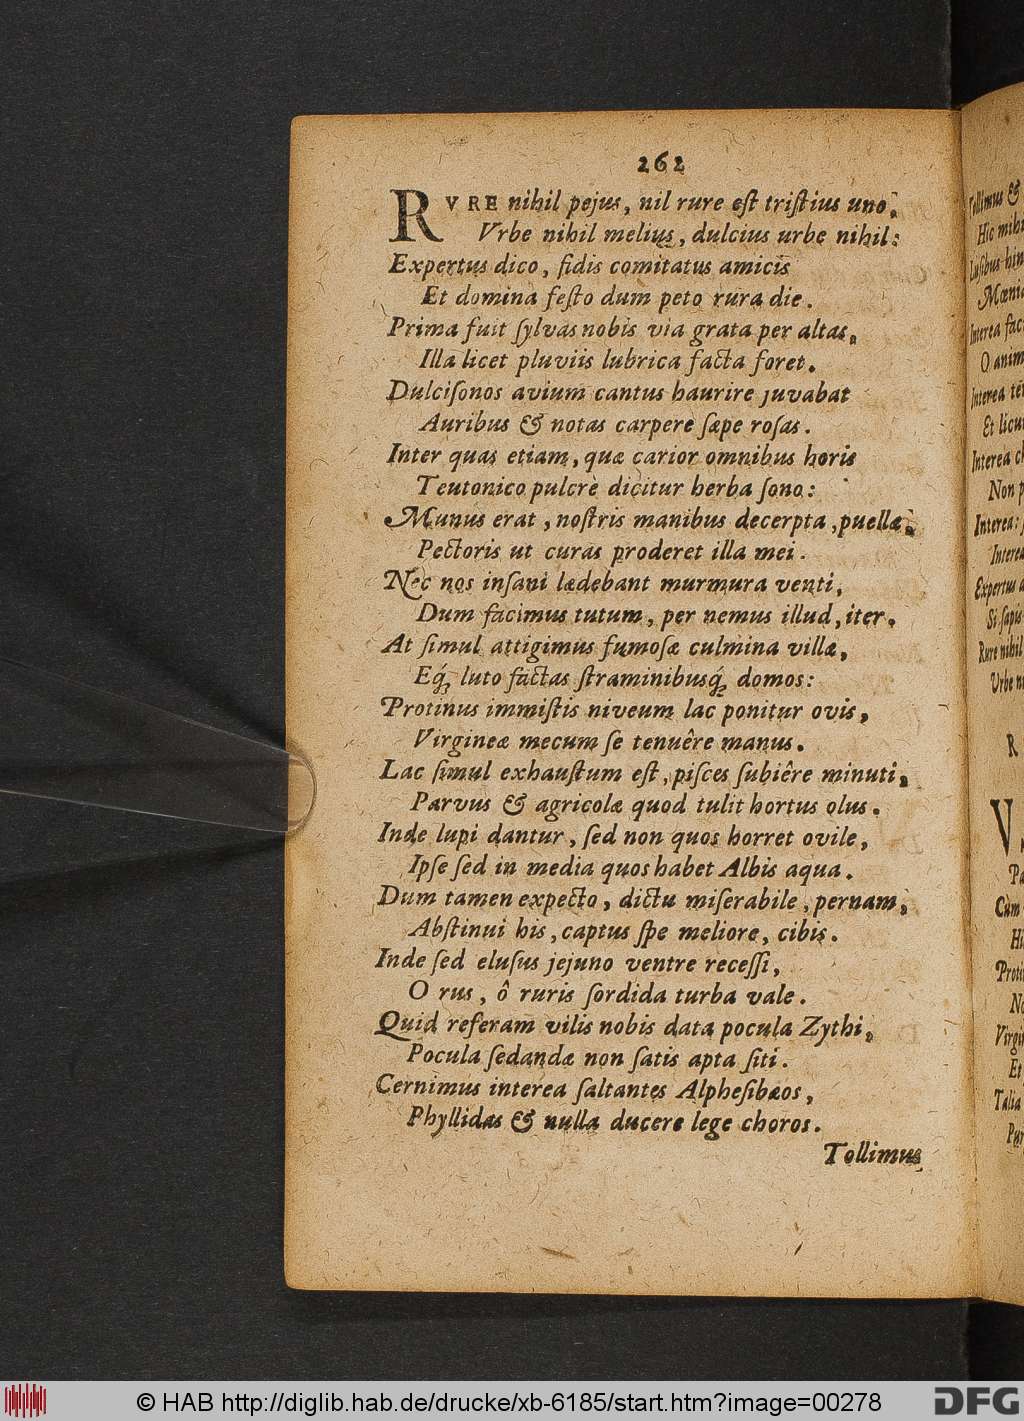 262
RVRE nihil pejus, nil rure eſt triſtius uno,
Vrbe nihil melius, dulcius urbe nihil:
Expertus dico, fidis comitatus amicis
Et domina feſto dum peto rura die.
Prima fuit ſylvas nobis via grata per altas,
Illa licet pluviis lubrica facta foret.
Dulciſonos avium cantus haurire juvabat
Auribus & notas carpere ſæpe roſas.
Inter quas etiam, quæ carior omnibus horis
Teutonico pulcrè dicitur herba ſono:
Munus erat, noſtris manibus decerpta, puellæ,
Pectoris ut curas proderet illa mei.
Nec nos inſani lædebant murmura venti,
Dum facimus tutum, per nemus illud, iter.
At ſimul attigimus fumoſæ culmina villæ,
Eq́; luto factas ſtraminibusq́; domos:
Protinus immiſtis niveum lac ponitur ovis,
Virgineæ mecum ſe tenuêre manus.
Lac ſimul exhauſtum eſt, piſces ſubiêre minuti,
Parvus & agricolæ quod tulit hortus olus.
Inde lupi dantur, ſed non quos horret ovile,
Ipſe ſed in media quos habet Albis aqua.
Dum tamen expecto, dictu miſerabile, pernam,
Abſtinui his, captus ſpe meliore, cibis.
Inde ſed eluſus jejuno ventre receſſi,
O rus, ô ruris ſordida turba vale.
Quid referam vilis nobis data pocula Zythi,
Pocula ſedandæ non ſatis apta ſiti.
Cernimus interea ſaltantes Alpheſibæos,
Phyllidas & nulla ducere lege choros.
Tollimus
Tollimus &
Hic mihi
Luſibus
Interea
O anim
Interea
Et licu
Interea
Non p
Interea:
Expertus
Si ſapis
Rure nihil
Vrbe
R
V
Cùm
Talia
© HAB http://diglib.hab.de/drucke/xb-6185/start.htm?image=00278
DFG